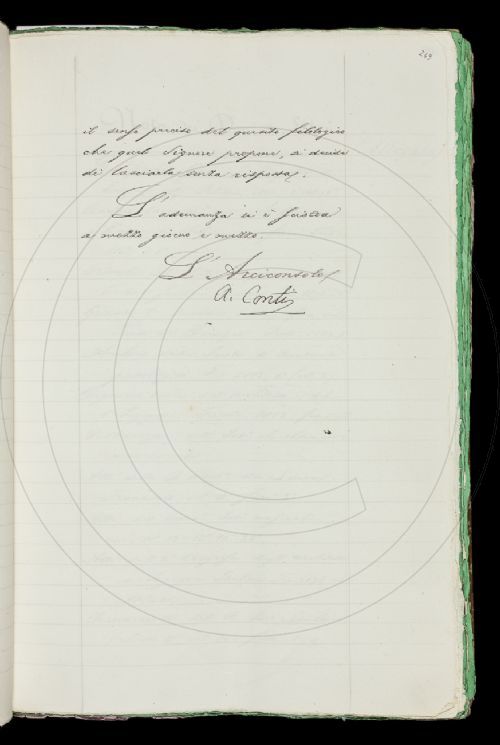 269
il senso preciso del quesito filologico
che quel Signore propone, si decide
di lasciarla senza risposta.
L'adunanza si è sciolta
a mezzo giorno e mezzo.
L'Arciconsolo
A. Conti